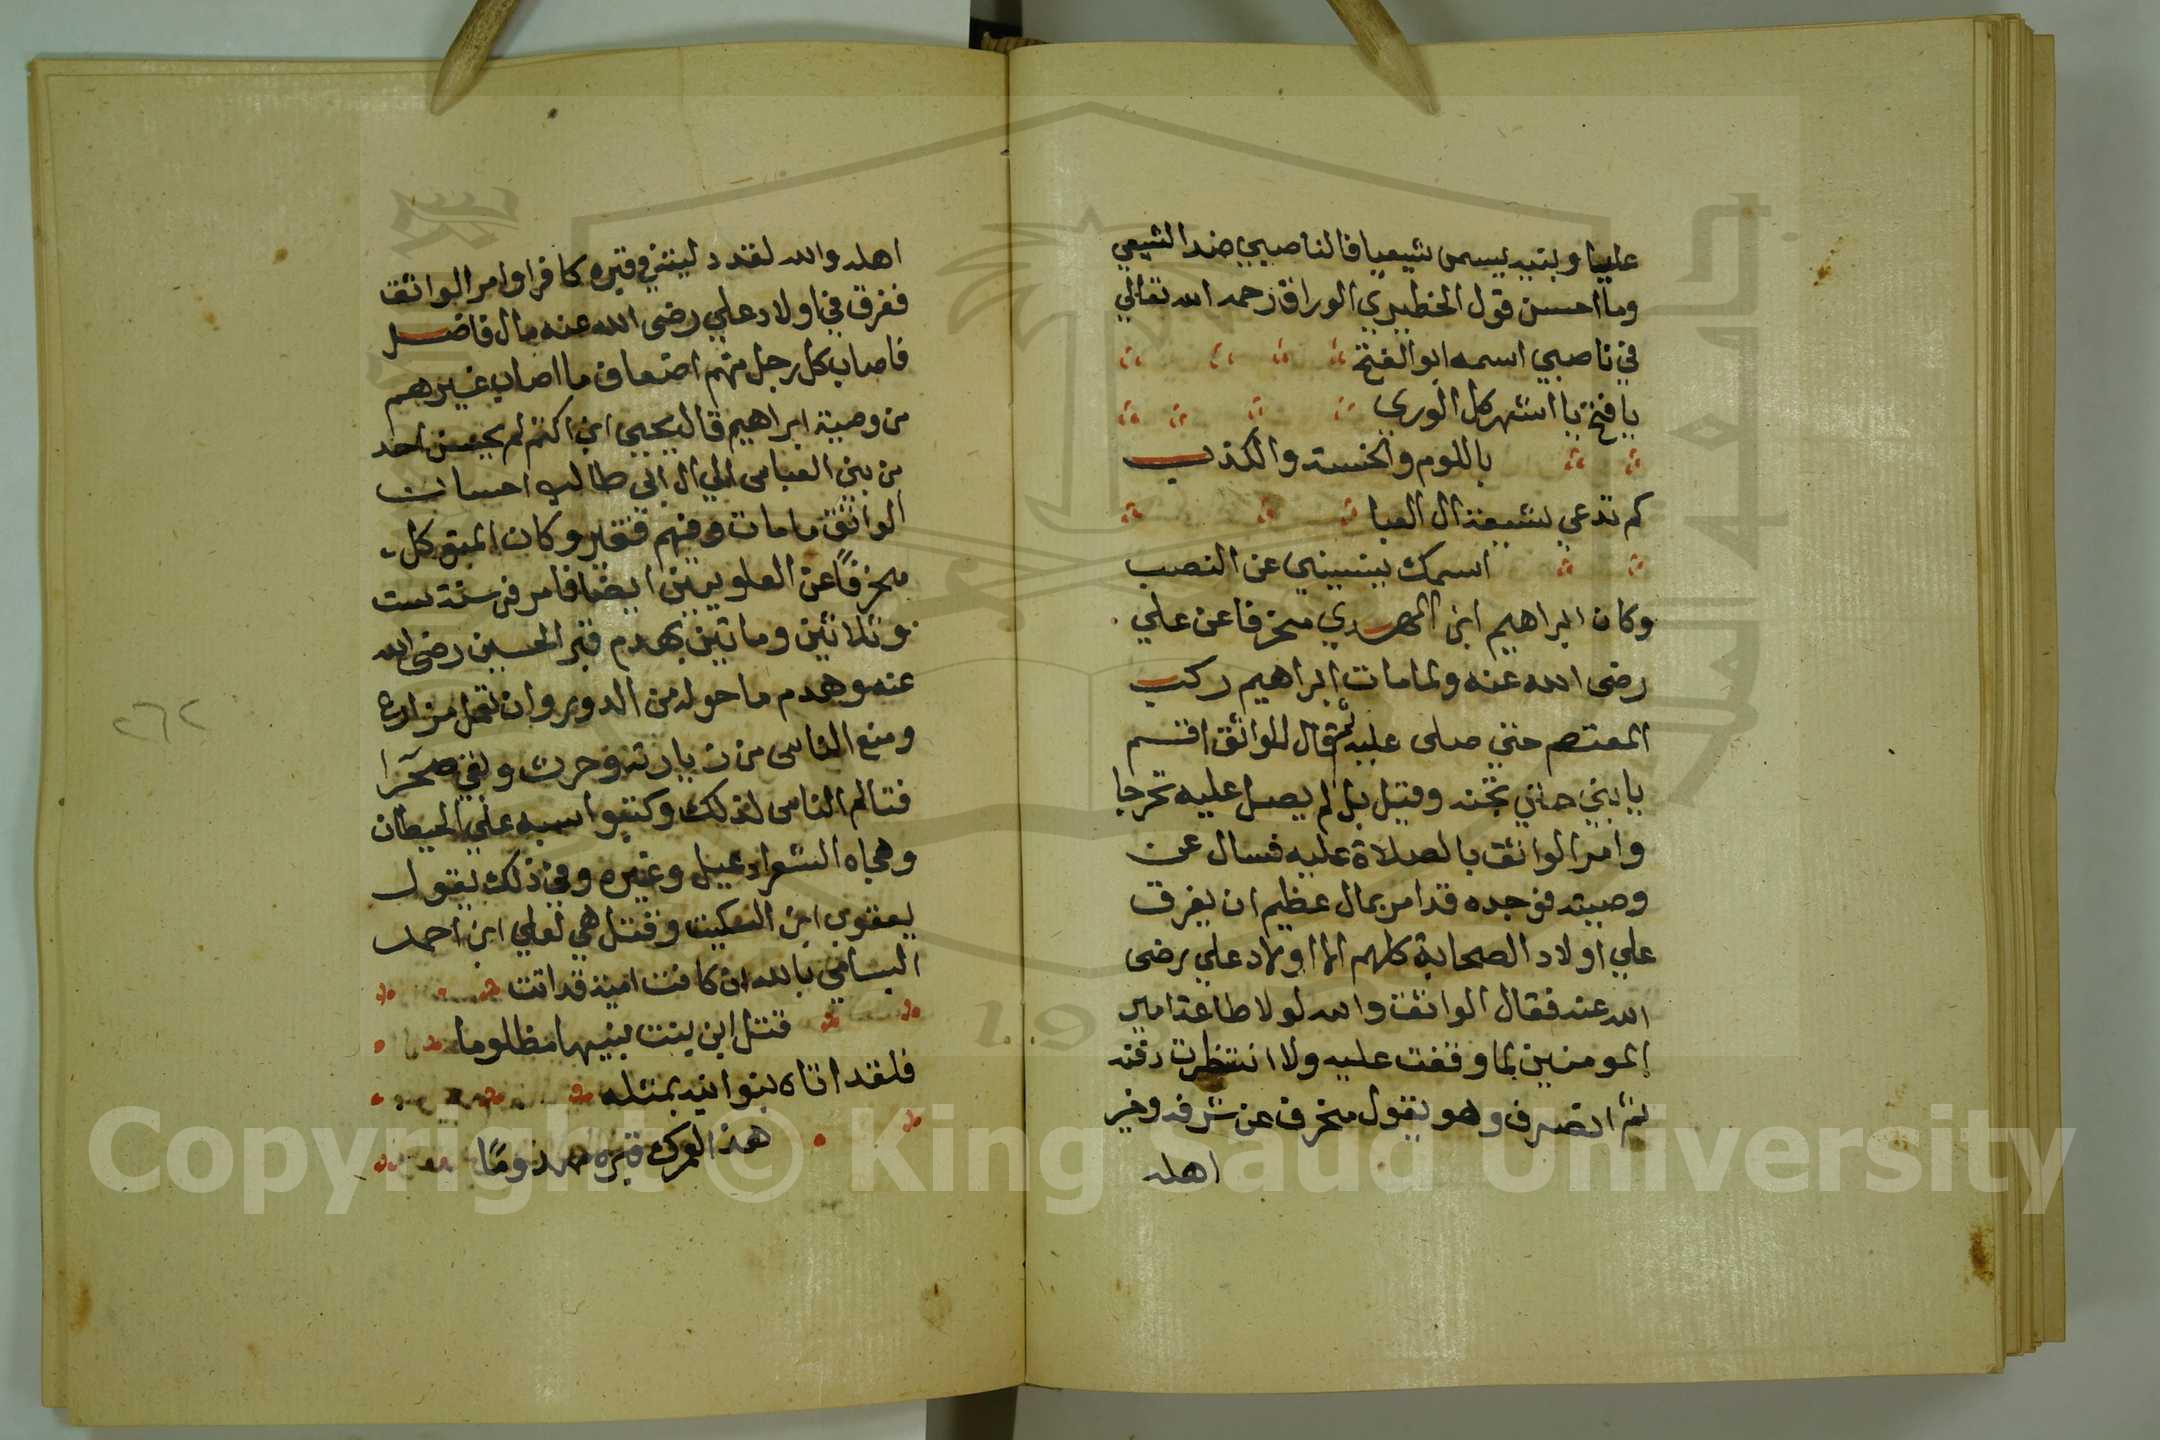 عليا وبنيه يسمى شيعيا فالناصبي ضد الشيعي
وما احسن قول الخطيري الوراق رحمه الله تعالي
في ناصبي اسمه ابو الفتح
يا فتح يا اشهر كل الوري
باللوم والخسة والكذب
كم تدعي بشيعة ال العبا
اسمك ينبيني عن النصب
وكان ابراهيم ابن المهدي منحرفا عن علي
رضى الله عنه ولما مات ابراهيم ركب
المعتصم حتي صلى عليه ثم قال للواثق اقم
يا بني حتي تجنه وقيل بل لم يصل عليه تحرجا
وامر الواثق بالصلاة عليه فسال عن
وصيته فوجده قد امر بمال عظيم ان يفرق
علي اولاد الصحابة كلهم الا اولاد علي رضى
الله عنه فقال الواثق والله لولا طاعة امير
المومنين لما وقفت عليه ولا انتظرت دفنه
ثم انصرف وهو يقول منحرف عن شرفه وخير
اهله
اهله والله لقد دليته في قبره كافرا وامر الواثق
ففرق في اولاد علي رضى الله عنه مال فاضل
فاصاب كل رجل منهم اضعاف ما اصاب غيرهم
من وصية ابراهيم قال يحيي ابن اكثم لم يحسن احد
من بني العباس الي ال ابي طالب احسان
الواثق ما مات وفيهم فقير وكان المتوكل
منحرفًا عن العلويين ايضا فامر في سنة ست
وثلاثين وماتين بهدم قبر الحسين رضى الله
عنه وهدم ما حوله من الدور وان تعمل مزارع
ومنع الناس من زيارته وحرث وبقي صحرا
فتالم الناس لذلك وكتبوا سبه علي الحيطان
وهجاه الشعرا دعبل وغيره وفي ذلك يقول
يعقوب ابن السكيت وقيل هي لعلي ابن احمد
البسامي بالله ان كانت امية قد اتت
قتل ابن بنت نبيها مظلوما
فلقد اتاه بنوا ابيه بمثله
هذا لعمرك قبره مهدومًا
٢٦٢
Copyright © King Saud University